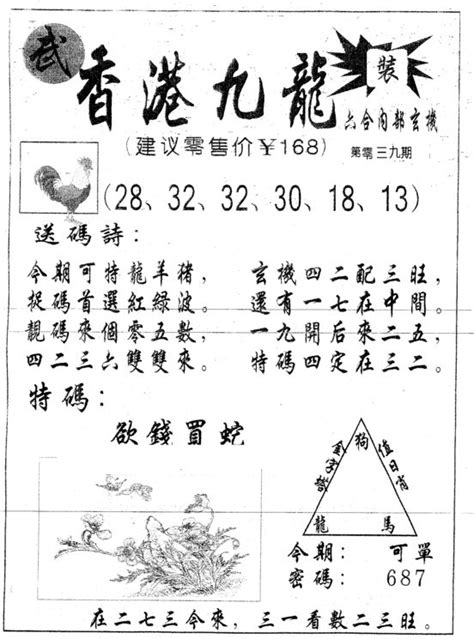 武
香港九龍
裝
六合内部玄機
(建议零售价￥168)
第零三九期
(28、32、32、30、18、13)
送碼詩：
今期可特龍羊猪，
捉碼首選紅綠波。
靚碼來個零五數，
四二三六雙雙來。
玄機四二配三旺，
還有一七在中間。
一九開后來二五，
特碼四定在三二。
特碼：
欲錢買蛇
狗
金字塔
值日肖
龍
馬
今期：可單
密碼：687
在二七三今來，三一看數二三旺。